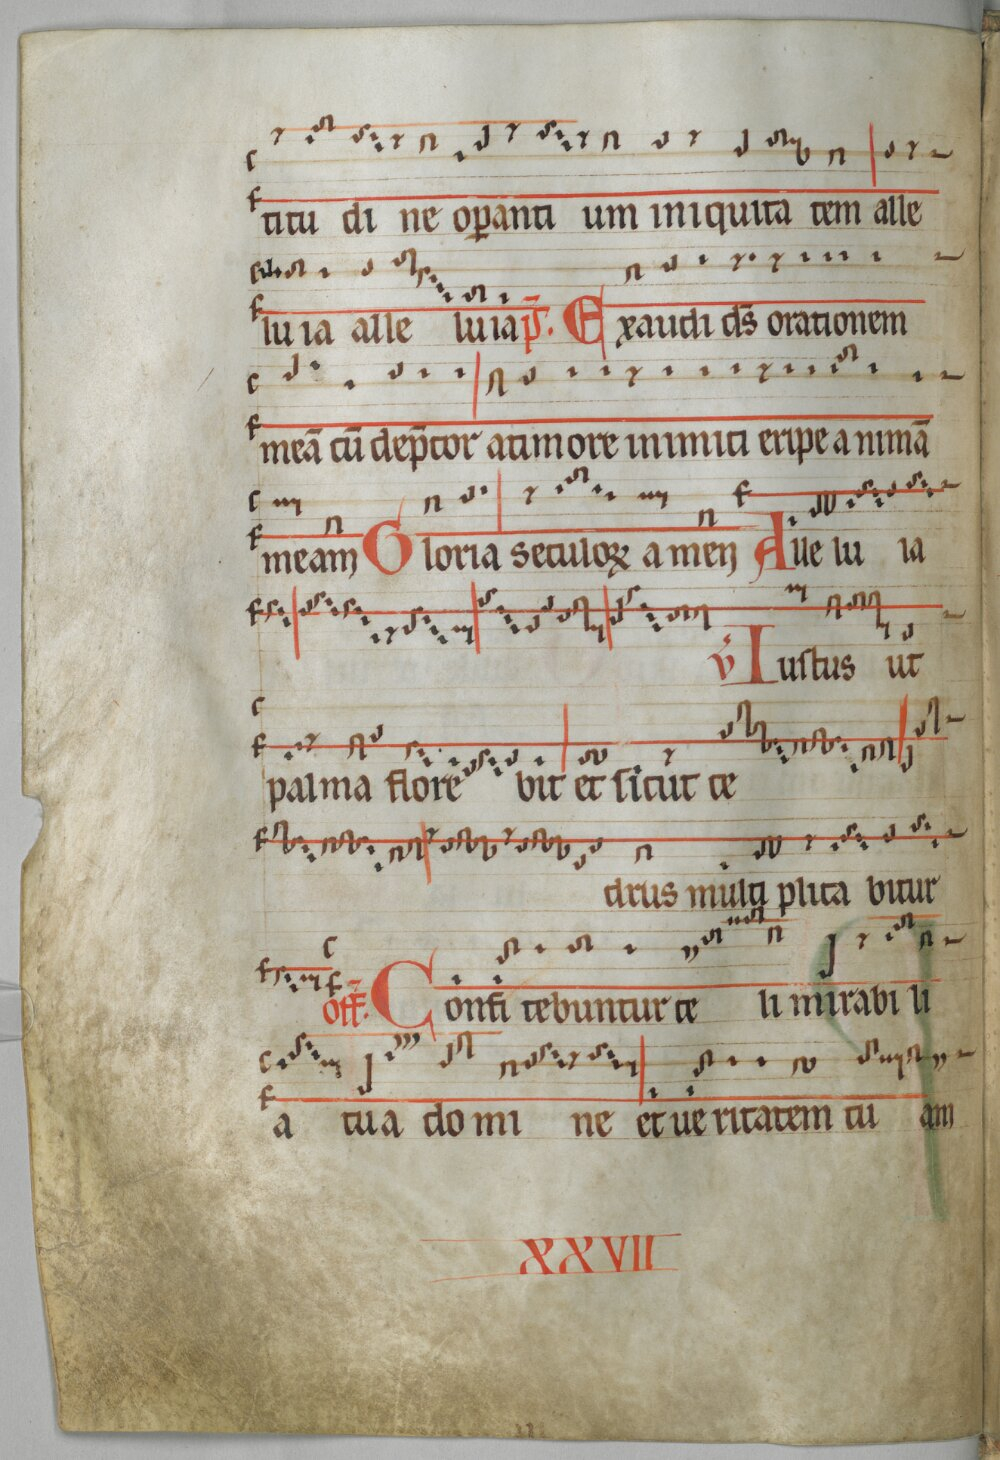 titu di ne oꝑanti um iniquita tem alle
lu ia alle lu ia p̄s. Exaudi dn̄s orationem
meā cū dep̄cor a timore inimici eripe animā
meam Gloria seculoꝝ amen Alle lu ia
v̄ Iustus ut
palma flore bit et sicut ce
drus multi plica bitur
Off̄. Confi tebuntur ce li mirabi li
a tua domi ne et ue ritatem tu am
XXVII